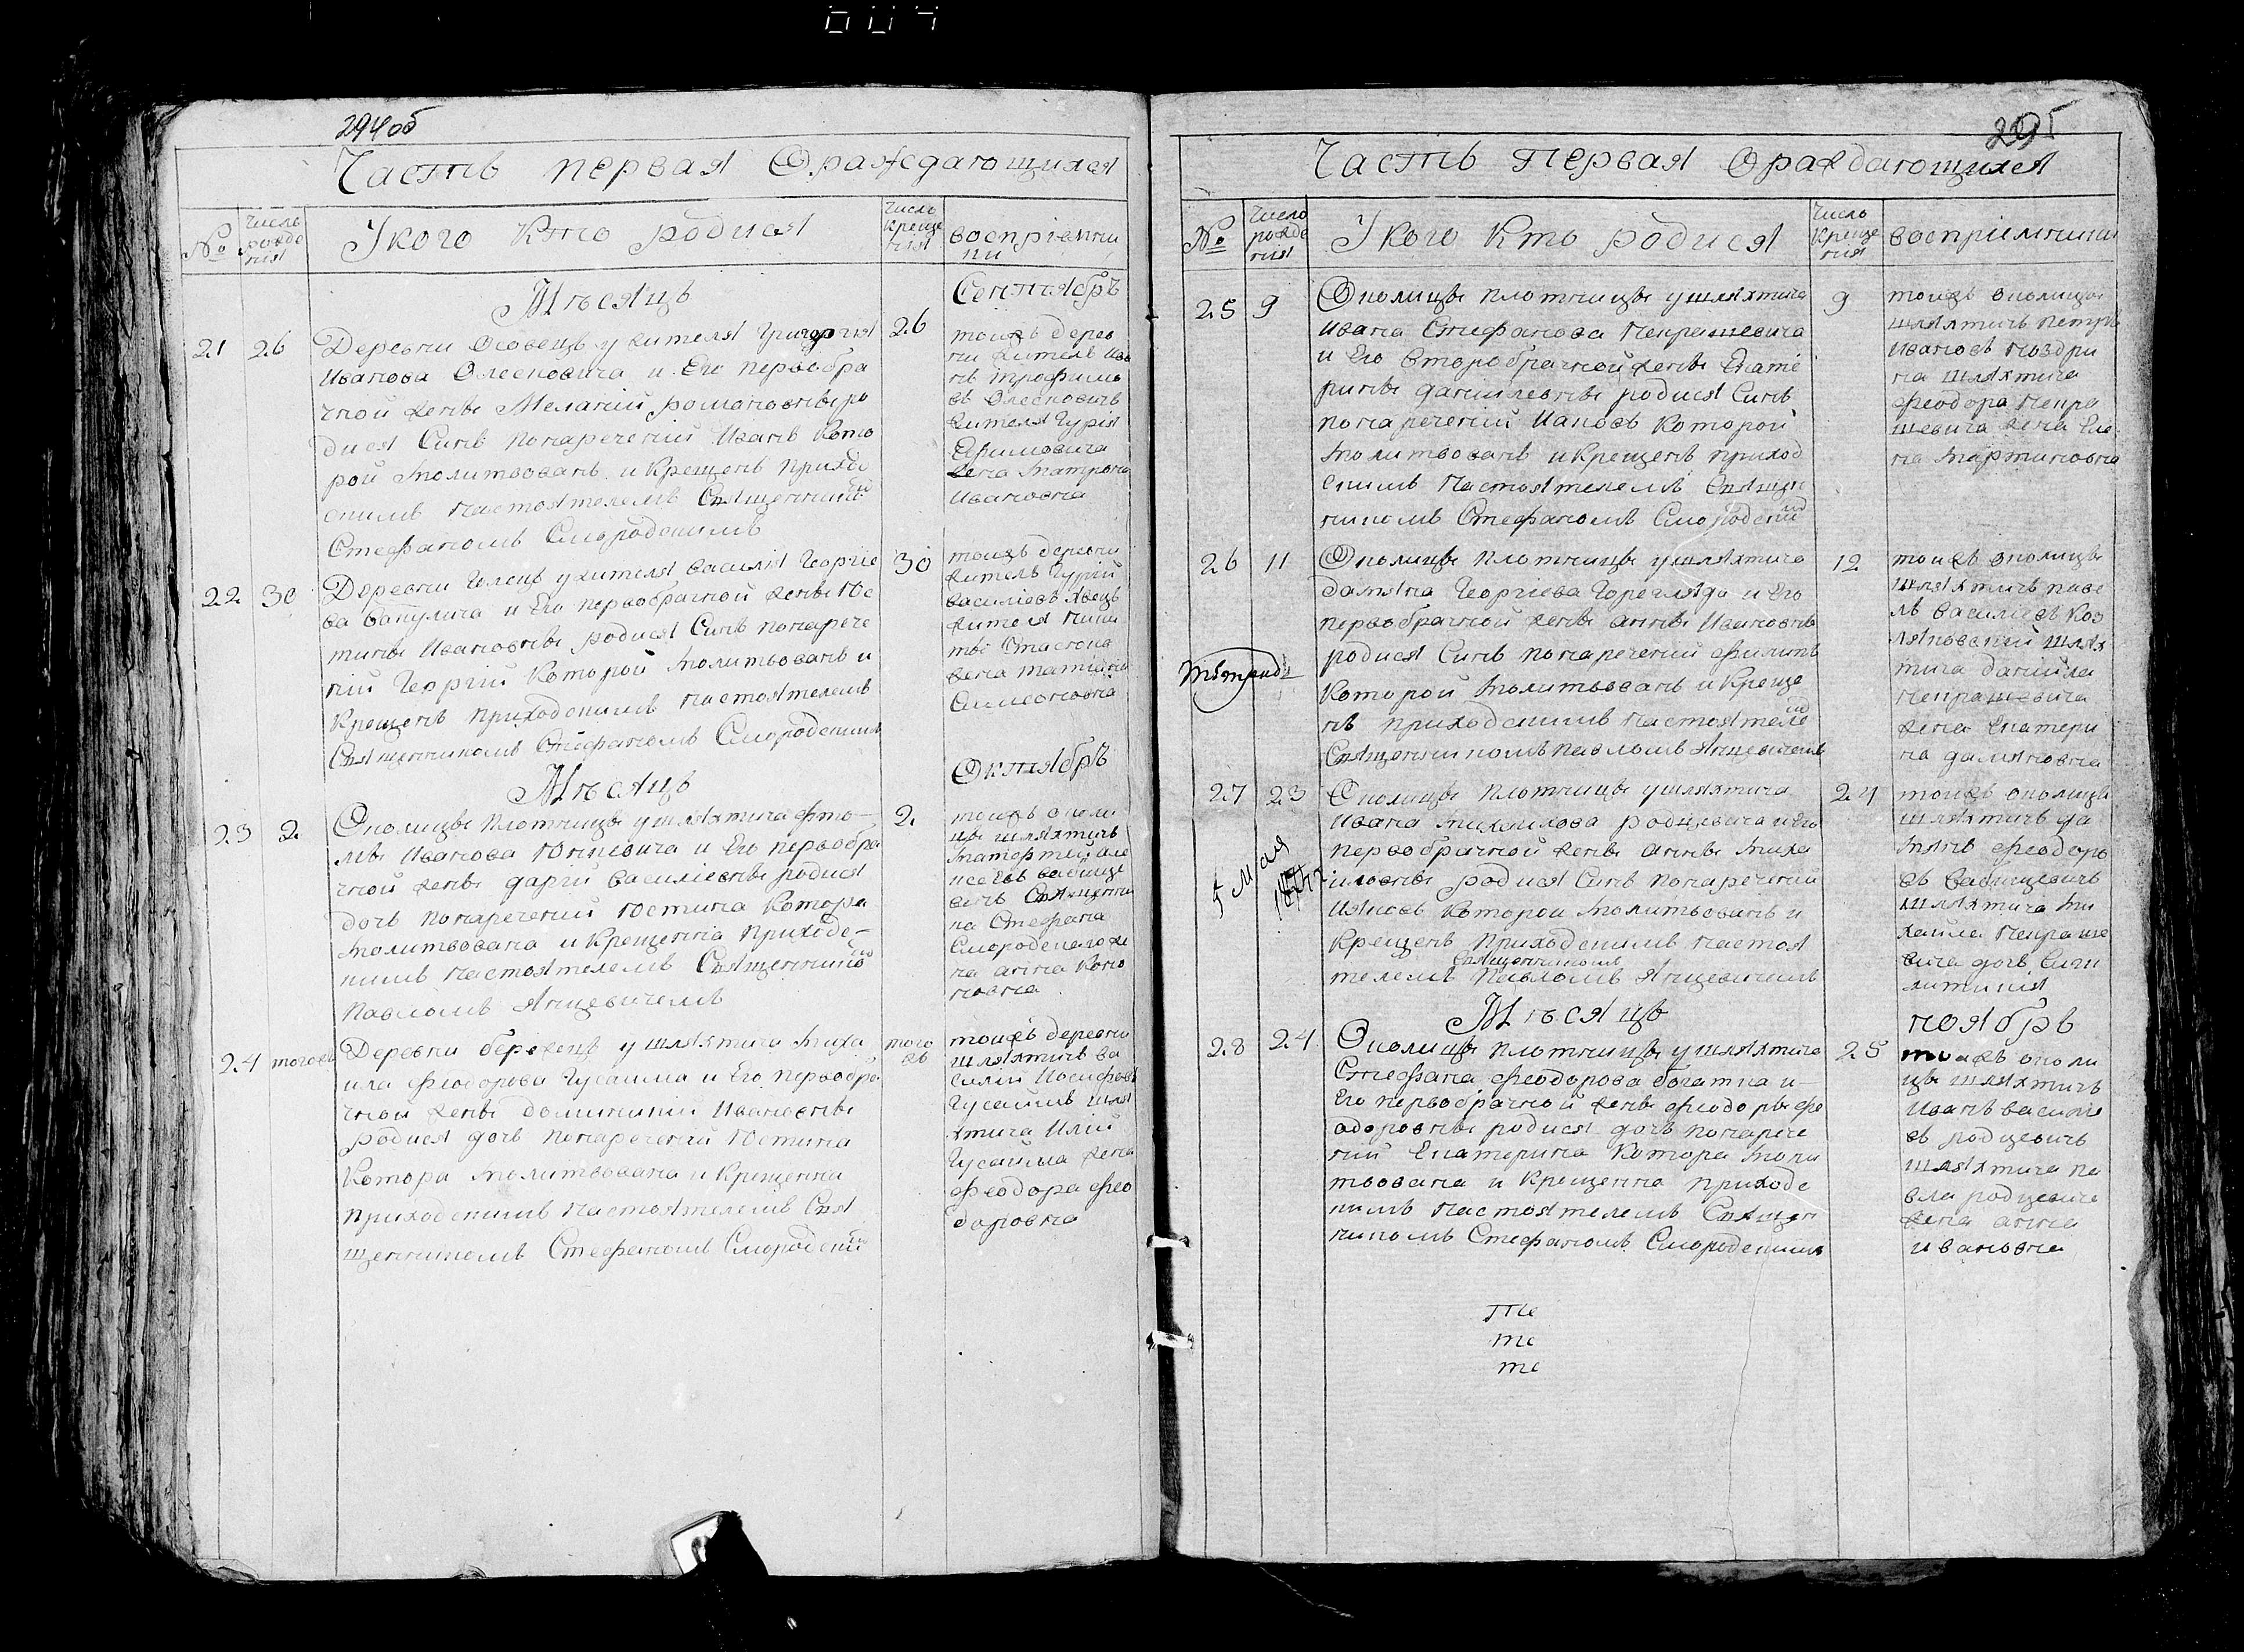 294об
Часть первая О раждающихся
№
Число рожде ния
У кого кто родился
Число креще ния
восприемни ки
Месяць Сентябрь
21 26
Деревни Осовець у жителя Григория
Иванова Олесковича и Его первобра
чной жены Меланий романовны ро
дися Синъ понаречений Иванъ Кото
рой молитвованъ и крещенъ приход
скимъ настоятелемъ Священник
Стефаномъ Смородскимъ
26
тоижъ дерев
ни житель Ива
нъ трофимо
въ Олесковичъ
жителя Гурія
Ефимовича
жена матрона
Ивановна
22 30
Деревни у жителя василія Георгіе
ва Вабулича и Его первобрачной жены Ю
тины Ивановны родися Синъ понарече
ний Георгій Которой молитвованъ и
крещенъ приходскимъ настоятелемъ
Священникомъ Стефаномъ Смородскимъ
30
тоижъ деревни
житель Гурій
василіевъ
жителя Ники
ты
жена татіана
Симеоновна
Месяць Октябрь
23 2
Околицы Плотницы у шляхтича
Иванова и Его первобра
чной жены дарій василіевны родися
дочъ понаречений Юстина Котора
молитвована и крещенна приход
скимъ настоятелемъ Священникомъ
Павломъ Янцевичемъ
2.
тоижъ околи
цы шляхтичъ
Матфей але
ксеевъ
вичъ Священни
ка Стефана
Смородскаго же
на анна Коно
новна
24 тогожъ
Деревни бережець у шляхтича миха
ила феодорова Гусаима и Его первобра
чной жены доминикий Ивановны
родися дочъ понаречений Юстина
Котора молитвована и крещенна
приходскимъ настоятелемъ Свя
щенникомъ Стефаномъ Смородский
того жъ
тоижъ деревни
шляхтичъ ва
силий Иосифовъ
Гусаимъ шля
хтича Илий
Гусаима жена
феодора фео
доровна
295
Часть Первая О раждающихся
№
Число рожде ния
У кого кто родися
Число креще ния
восприемники
25 9
Околицы плотницы у шляхтича
Ивана Стефанова Некрашевича
и Его второбрачной жены Екате
рины даниловны родися Синъ
понаречений Иаковъ Которой
молитвованъ и крещенъ приход
скимъ настоятелемъ Священ
никомъ Стефаномъ Смородский
9
тоижъ околицы
шляхтичъ петръ
Ивановъ ноздри
на шляхтича
феодора Некра
шевича жена Еле
на мартиновна
26 11
Околицы плотницы у шляхтича
дамяна Георгіева Горегляда и Его
первобрачной жены анны Ивановны
родися Синъ понаречений филипъ
Которой молитвованъ и креще
нъ приходскимъ настоятеле
Священникомъ павломъ Янцевичемъ
12
тоижъ околицы
шляхтичъ паве
лъ василіевъ Коз
ляковский шлях
тича данійла
Некрашевича
жена Екатери
на дамяновна
27 23
5 Мая
Околицы плотницы у шляхтича
Ивана михаилова родцевича и Его
первобрачной жены анны миха
иловны родися Синъ понаречений
Иаковъ Которой молитвованъ и
крещенъ приходскимъ настоя
Священникомъ
телемъ Павломъ Янцевичемъ
24
тоижъ околицы
шляхтичъ да
міянъ феодоро
въ
шляхтича ми
хаила Некраше
вича дочъ
Месяць ноябрь
28 24
Околицы плотницы у шляхтича
Стефана феодорова богатка и
Его первобрачной жены феодоры фе
одоровны родися дочъ понарече
ний Екатерина Котора моли
твована и крещенна приход
скимъ настоятелемъ Священ
никомъ Стефаномъ Смородскимъ
25
тоижъ околи
цы шляхтичъ
Иванъ василие
въ родцевичъ
шляхтича па
вла родцевича
жена анна
ивановна